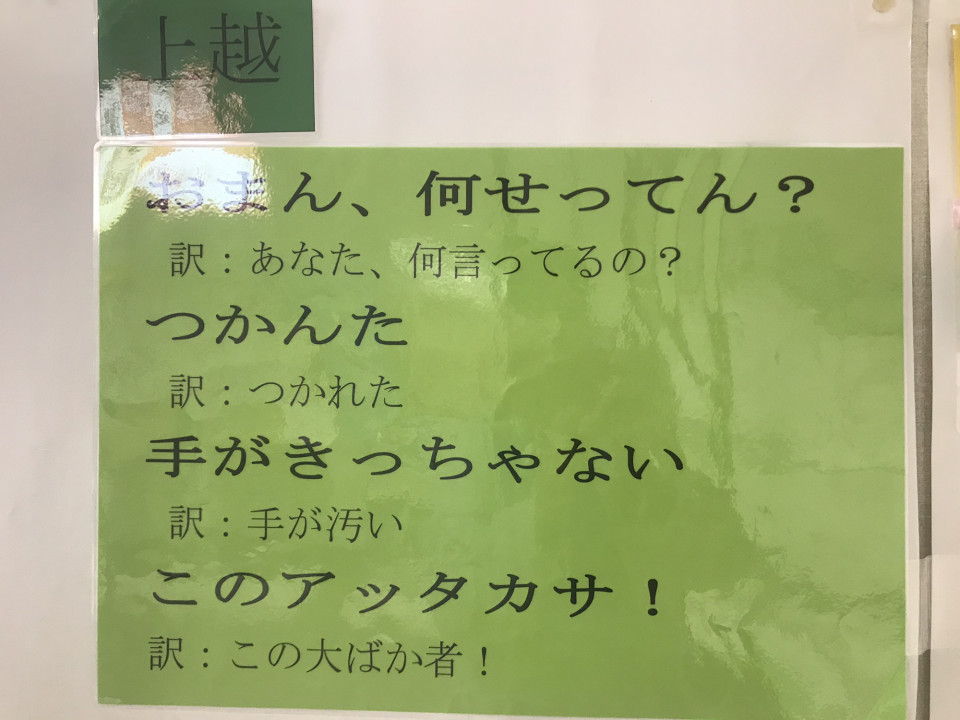 上越
おまん、何せってん？
訳：あなた、何言ってるの？
つかんた
訳：つかれた
手がきっちゃない
訳：手が汚い
このアッタカサ！
訳：この大ばか者！